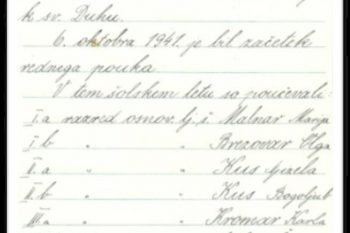 k sv. Duhu.
6. oktobra 1941. je bil začetek
rednega pouka.
V tem šolskem letu so poučevali:
I.a razred osnov. lj. š. Malnar Marija
I.b " " Brezovar Olga
II.a " " Kus Gizela
II.b " " Kus Bogoljub
III.a " " Kromar Karla